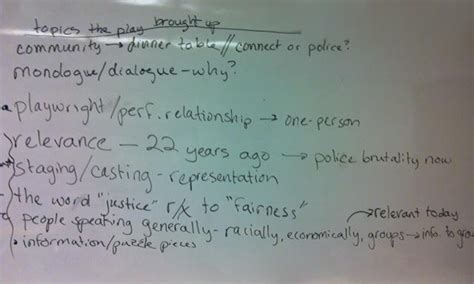 topics the play brought up
community → dinner table // connect or police?
monologue/dialogue - why?
playwright/perf. relationship → one-person
relevance - 22 years ago → police brutality now
staging/casting - representation
the word "justice" r/x to "fairness"
→ relevant today
people speaking generally - racially, economically, groups → info. to grou
information/puzzle pieces